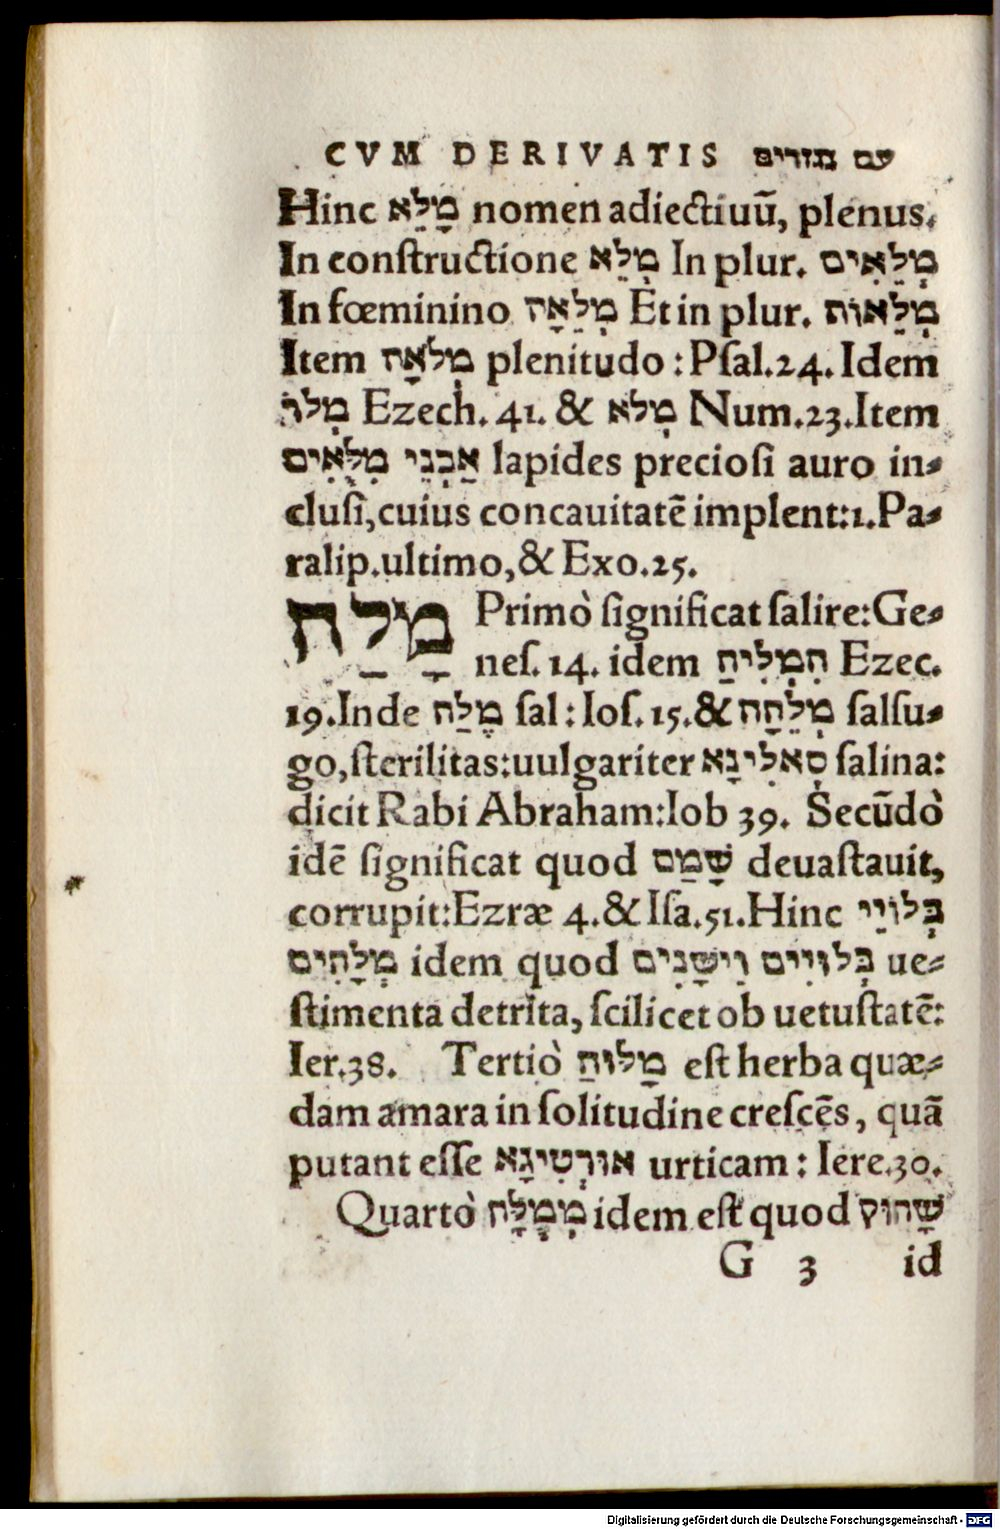 CVM DERIVATIS עם נגזרים
Hinc מָלֵא nomen adiectiuū, plenus.
In conſtructione מְלֵא In plur. מְלֵאִים
In fœminino מְלֵאָה Et in plur. מְלֵאוֹת
Item מְלֹאָה plenitudo : Pſal.24. Idem
מְלֹו Ezech. 41. & מְלֹא Num.23.Item
אַבְנֵי מִלֻּאִים lapides precioſi auro in⸗
cluſi,cuius concauitatē implent:1.Pa⸗
ralip.ultimo,& Exo.25.
מָלַח Primò ſignificat ſalire:Ge⸗
neſ. 14. idem הִמְלִיחַ Ezec.
19.Inde מֶלַח ſal : Ioſ. 15.& מְלֵחָה ſalſu⸗
go,ſterilitas:uulgariter סָאלִינָא ſalina:
dicit Rabi Abraham:Iob 39. Secūdò
idē ſignificat quod שָׁמַם deuaſtauit,
corrupit:Ezræ 4.& Iſa.51.Hinc בְּלוֹיֵי
מְלָחִים idem quod בְּלוּיִים וִישָׁנִים ue⸗
ſtimenta detrita, ſcilicet ob uetuſtatē:
Ier.38. Tertiò מָלוּחַ eſt herba quæ⸗
dam amara in ſolitudine creſcēs, quā
putant eſſe אוּרְטִיגָא urticam : Iere.30.
Quartò מְמֻלָּח idem eſt quod שָׁחוּק
G 3 id
Digitalisierung gefördert durch die Deutsche Forschungsgemeinschaft - DFG